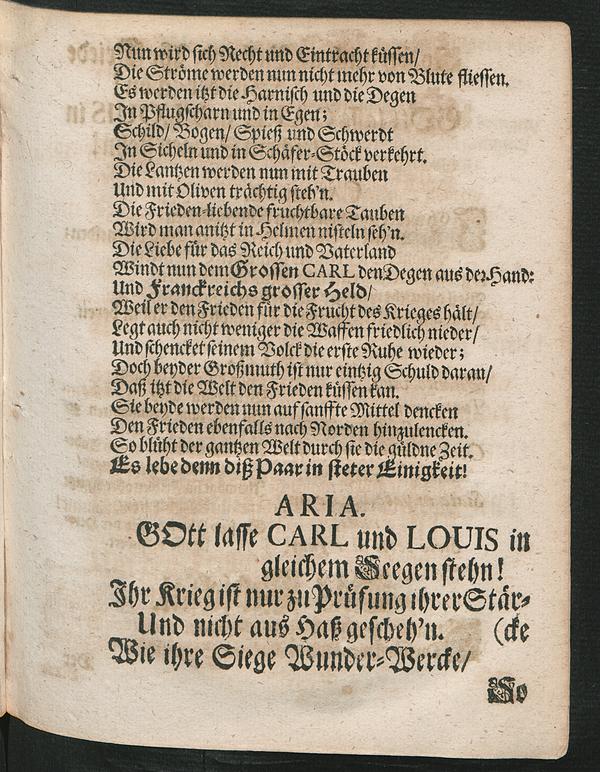 Nun wird sich Recht und Eintracht küssen/
Die Ströme werden nun nicht mehr von Blute fliessen.
Es werden itzt die Harnisch und die Degen
In Pflugscharn und in Egen;
Schild/ Bogen/ Spieß und Schwerdt
In Sicheln und in Schäfer-Stöck verkehrt.
Die Lantzen werden nun mit Trauben
Und mit Oliven trächtig steh'n.
Die Frieden-liebende fruchtbare Tauben
Wird man anitzt in Helmen nisteln seh'n.
Die Liebe für das Reich und Vaterland
Windt nun dem Grossen CARL den Degen aus der Hand:
Und Franckreichs grosser Held/
Weil er den Frieden für die Frucht des Krieges hält/
Legt auch nicht weniger die Waffen friedlich nieder/
Und schencket seinem Volck die erste Ruhe wieder;
Doch beyder Großmuth ist nur eintzig Schuld daran/
Daß itzt die Welt den Frieden küssen kan.
Sie beyde werden nun auf sanffte Mittel dencken
Den Frieden ebenfalls nach Norden hinzulencken.
So blüht der gantzen Welt durch sie die güldne Zeit.
Es lebe denn diß Paar in steter Einigkeit!
ARIA.
GOtt lasse CARL und LOUIS in
gleichem Seegen stehn!
Ihr Krieg ist nur zu Prüfung ihrer Stär-
Und nicht aus Haß gescheh'n. (cke
Wie ihre Siege Wunder-Wercke/
So